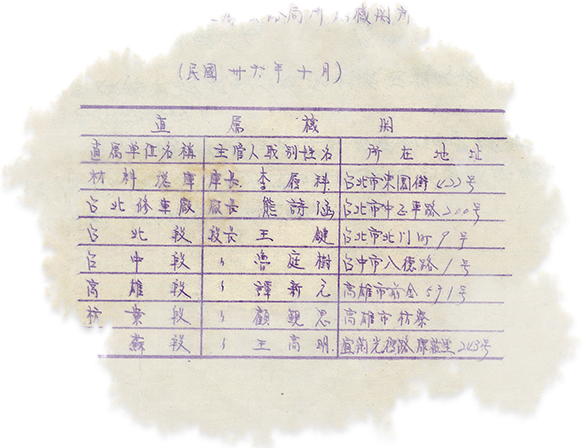 局所機關
(民國卅六年十月)
直屬機關
直属单位名稱 主管人职别姓名 所在地址
材料總庫 庫長 李履科 台北市東園街422号
台北修車廠 廠長 熊詩涵 台北市中正東路200号
台北段 段長 王鍵 台北市北门町9号
台中段 〃 魯庭樹 台中市八德路1号
高雄段 〃 譚新元 高雄市前金571号
枋寮段 〃 顧觀思 高雄市枋寮
蘇段 〃 王高明 宜蘭光復路 243号